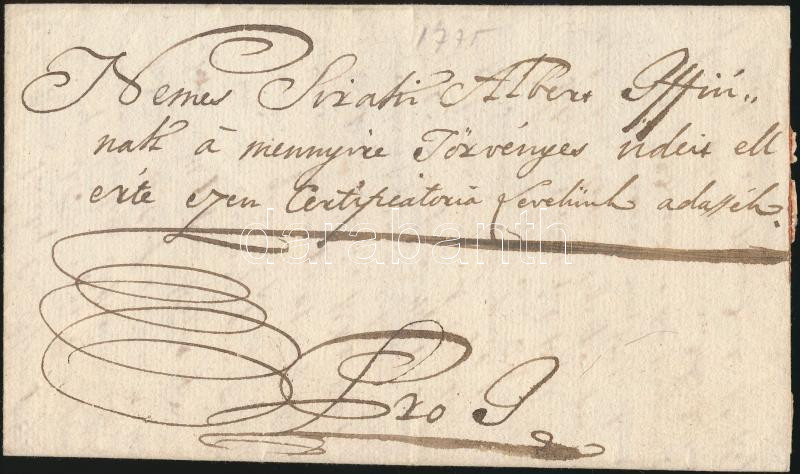 1775
Nemes Siraki Albert Iffiú„
nak à mennyire Törvényes üdeit ell
érte ezen Certificatoria Levelünk adassék.
darabanth
Pro I